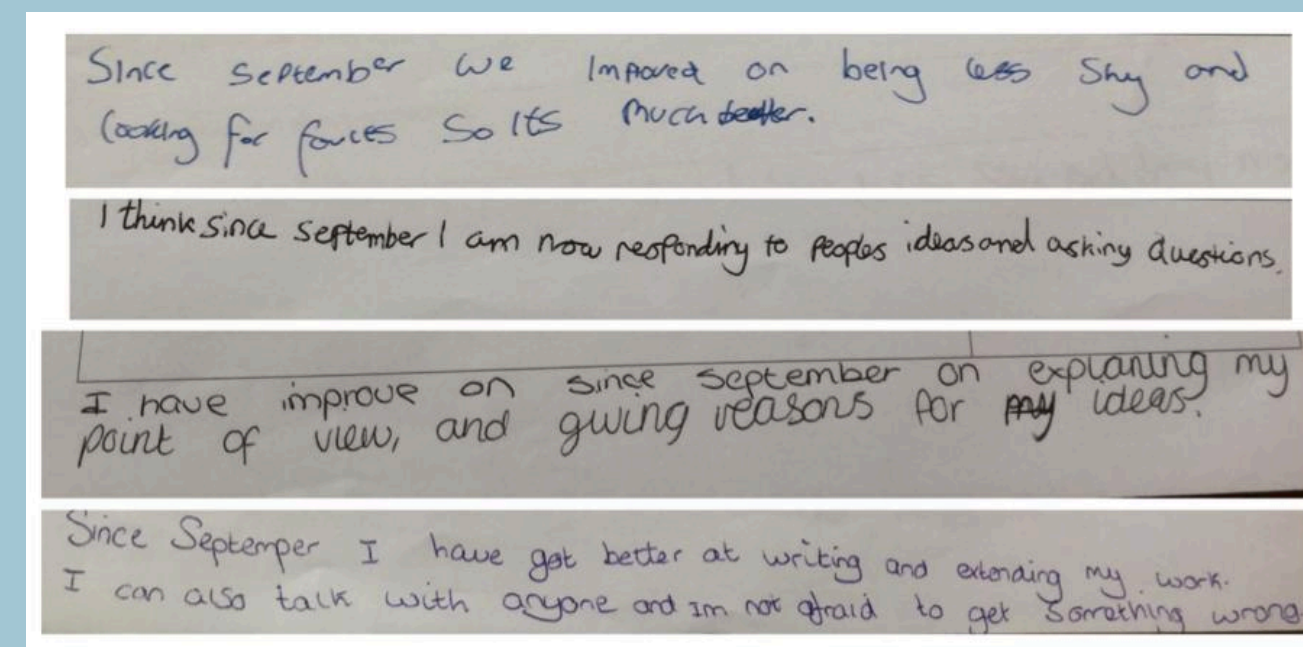 Since September we Impoved on being less Shy and
looking for fources So Its much better.
I think since september I am now responding to peoples ideas and asking Questions.
I have improve on since september on explaning my
point of view, and giving reasons for my ideas.
Since Septemper I have got better at writing and extending my work.
I can also talk with anyone and Im not afraid to get Something wrong.